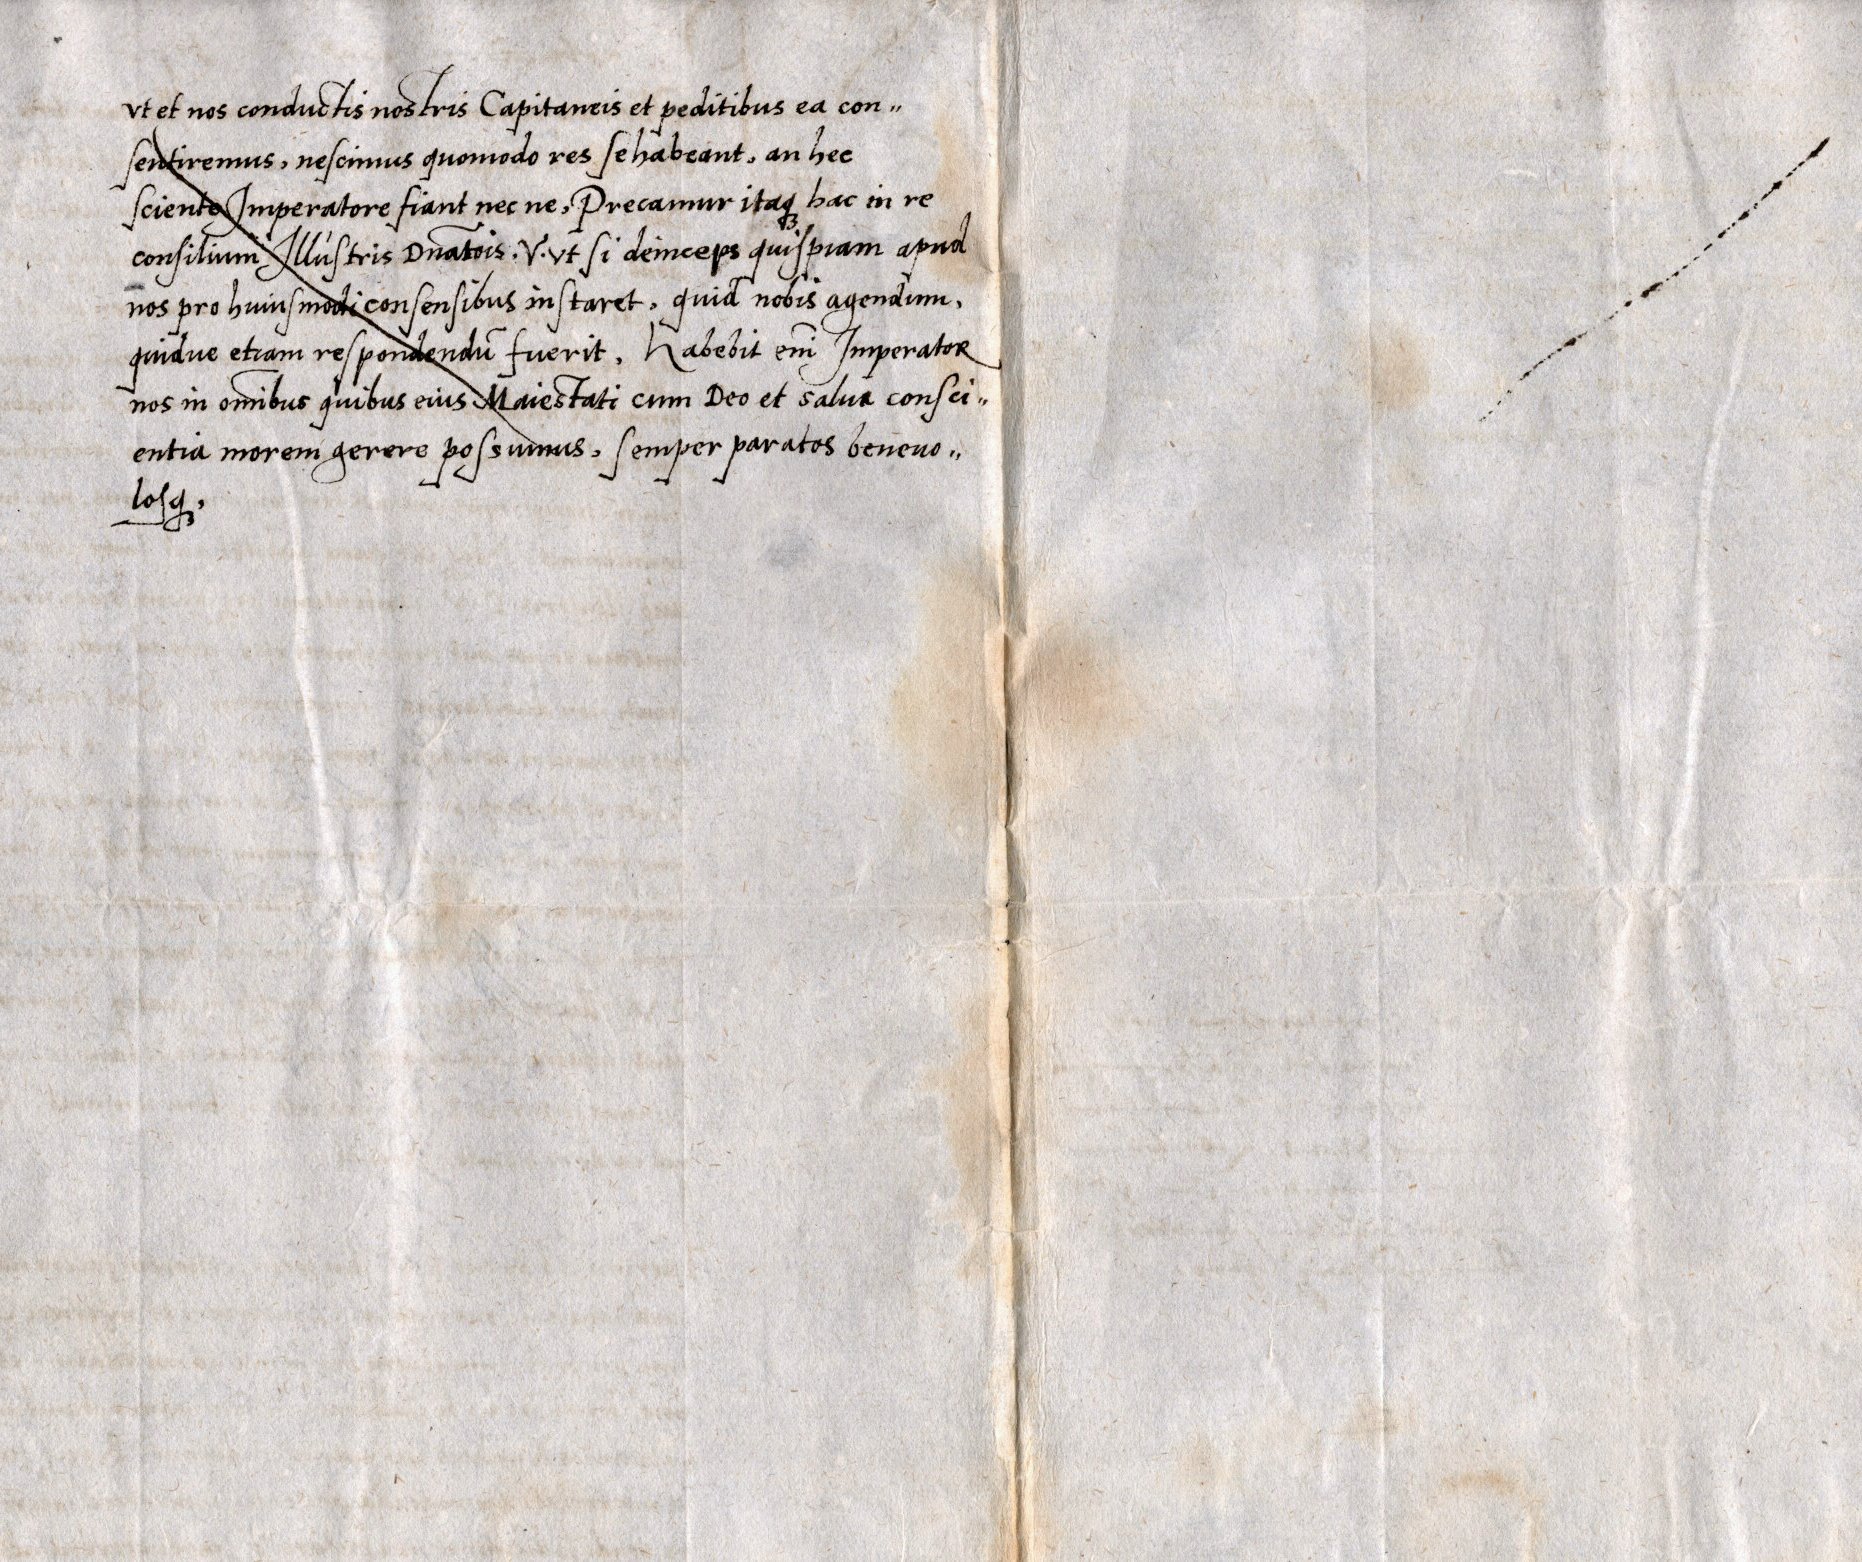 vt et nos conductis nostris Capitaneis et peditibus ea con„
sentiremus, nescimus quomodo res se habeant, an hec
sciente Imperatore fiant nec ne, Precamur itaqꝫ hac in re
consilium Illustris Dn̄atōis. V. vt si deinceps quispiam apud
nos pro huiusmodi consensibus instaret, quid nobis agendum,
quidue etiam respondendū fuerit. Habebit em̄ Imperator
nos in om̄ibus quibus eius Maiestati cum Deo et salua consci„
entia morem gerere possumus, semper paratos beneuo„
losqꝫ,